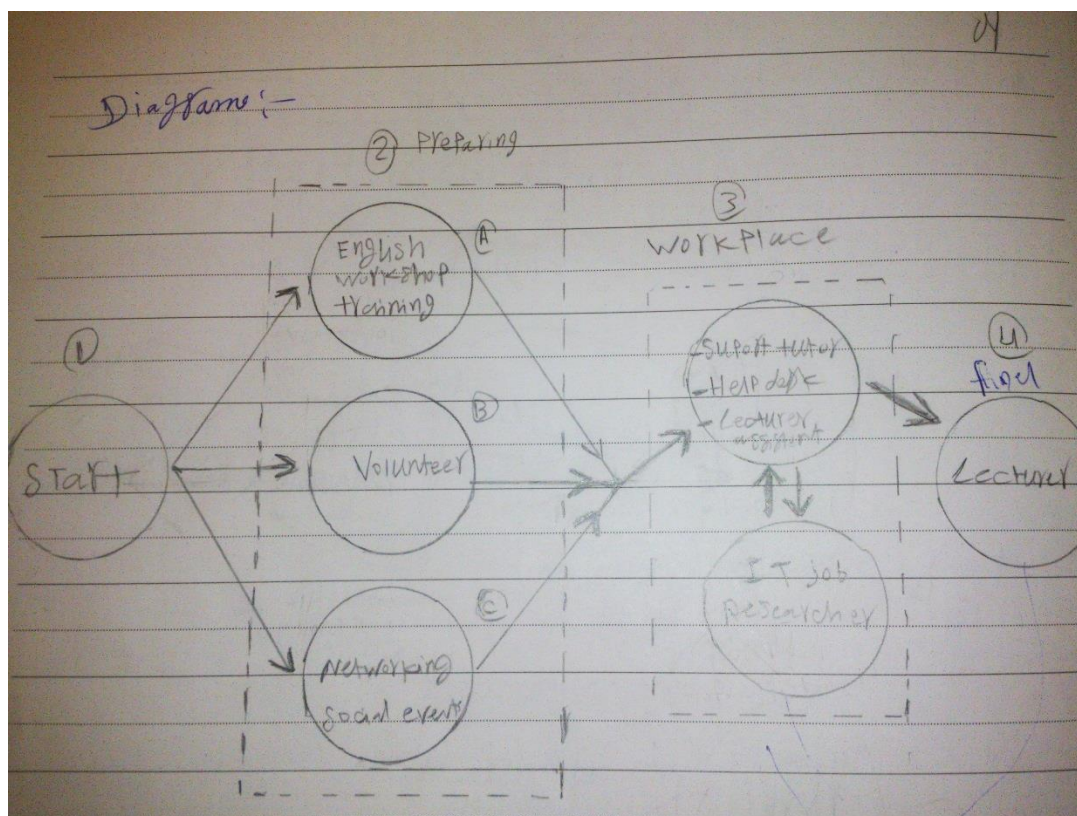 Diagrame:-
② Preparing
③
Workplace
①
④
final
Start
English
workshop
training
A
Volunteer
B
Networking
social events
C
- Suport tutor
- Help desk
- Lecturer
assistant
IT job
researcher
Lecturer